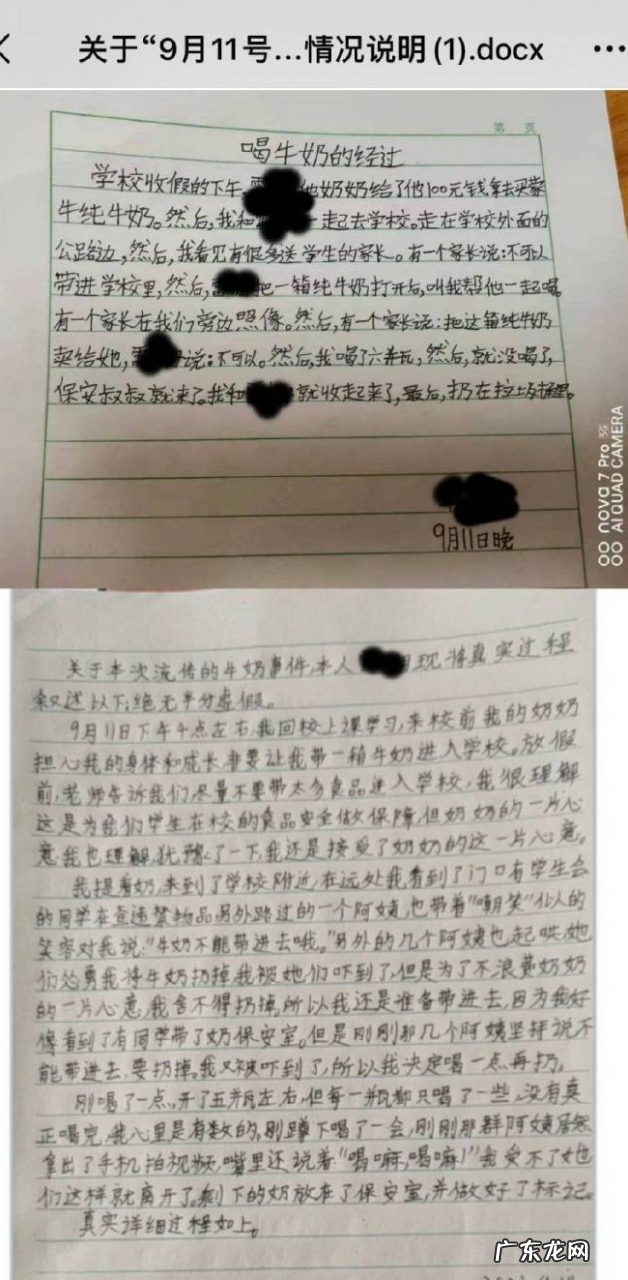 关于“9月11号...情况说明(1).docx
第 页
喝牛奶的经过
学校收假的下午 他奶奶给了他100元钱拿去买蒙
牛纯牛奶。然后,我和 一起去学校。走在学校外面的
公路边,然后,我看见有很多送学生的家长。有一个家长说:不可以
带进学校里,然后, 把一箱纯牛奶打开后,叫我帮他一起喝。
有一个家长在我们旁边照像。然后,有一个家长说:把这箱纯牛奶
卖给她, 说:不可以。然后,我喝了六并瓦,然后,就没喝了,
保安叔叔就来了。我和 就收起来了,最后,扔在垃圾桶里。
9月11日晚
nova 7 Pro 5G
AI QUAD CAMERA
关于本次流传的牛奶事件,本人 现将真实过程
叙述以下,绝无半分虚假。
9月11日下午午点左右,我回校上课学习,来校前我的奶奶
担心我的身体和成长,非要让我带一箱牛奶进入学校。放假
前,老师告诉我们尽量不要带太多食品进入学校,我很理解
这是为我们学生在校的食品安全做保障,但奶奶的一片心
意我也理解,犹豫了一下,我还是接受了奶奶的这一片心意。
我提着奶,来到了学校附近,在远处我看到了门口有学生会
的同学在查违禁物品,另外路过的一个阿姨,也带着“嘲笑”他人的
笑容对我说:“牛奶不能带进去哦。”另外的几个阿姨也起哄,她
们怂恿我将牛奶扔掉,我被她们吓到了,但是为了不浪费奶奶
的一片心意,我舍不得扔掉,所以我还是准备带进去,因为我好
像看到了有同学带了奶保安室。但是刚刚那几个阿姨坚持说不
能带进去,要扔掉。我又被吓到了,所以我决定喝一点再扔。
刚喝了一点,开了五瓶左右,但每一瓶都只喝了一些,没有真
正喝完,我心里是有数的,刚蹲下喝了一会,刚刚那群阿姨居然
拿出了手机拍视频,嘴里还说着“喝嘛,喝嘛!”我受不了她
们这样就离开了。剩下的奶放在了保安室,并做好了标记。
真实详细过程如上。
广东龙网